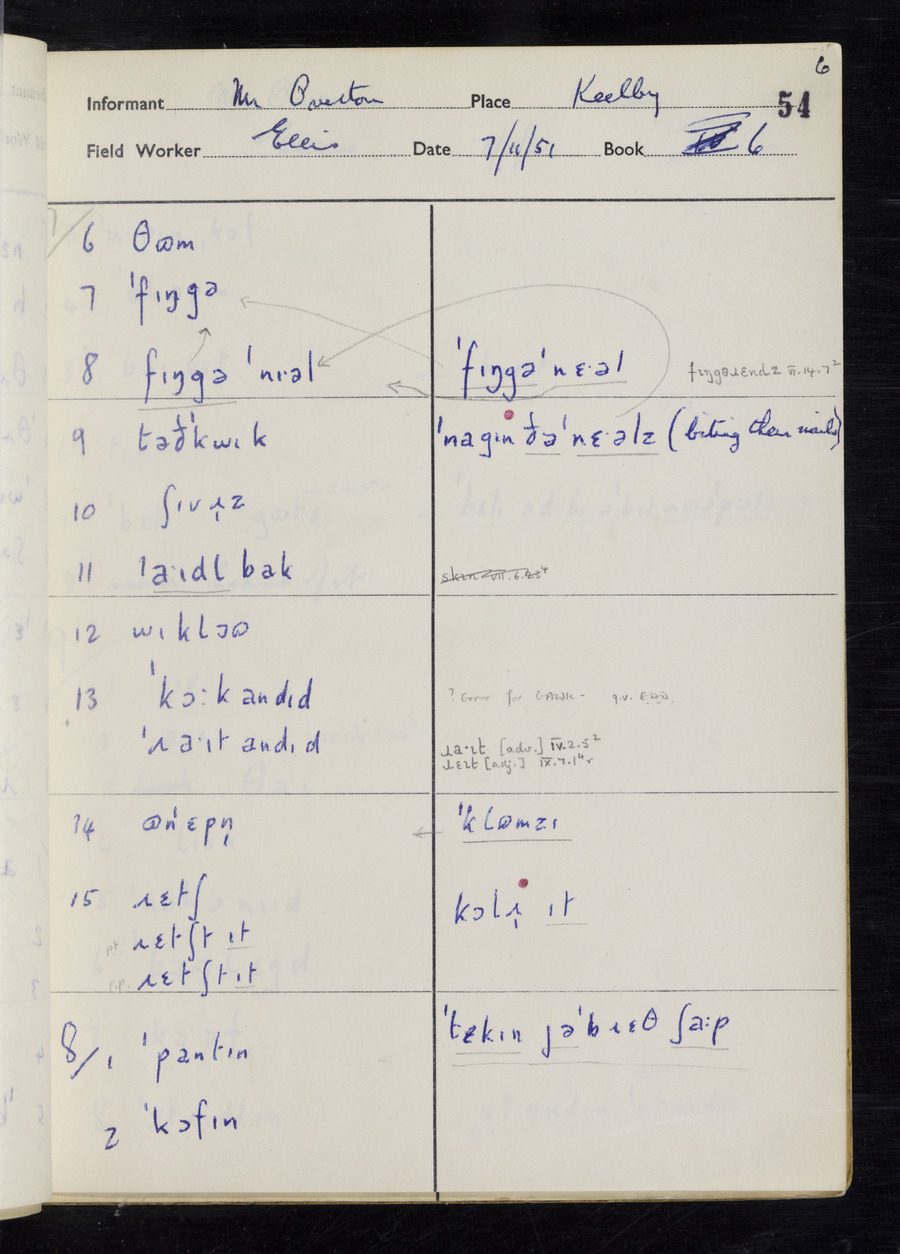 6
Informant Mr Place Keelby 54
Field Worker Ellis Date 7/11/51 Book 6
7/ 6 θɷm
7 ˈfɪŋgə
8 fɪŋgə ˈnɪ·əl ˈfɪŋgəˈnɛ·əl fɪŋgəɹɛndz VI.14.7²
9 ˈnagɪn ðəˈnɛ·əlz (biting their nails)
10 ʃɪvɹ̩z
11 ˈa·ɪdl bak
12 wɪklɔɷ
13 ˈkɔːkandɪd ? Error for GAWK- q.v. EDD.
ˈɹa·ɪtandɪd ɹa·ɪt [adv.] IV.2.5²
ɹɛɪt [adj.] IX.7.1⁴ʳ
14 ɷnˈɛpn̩ ˈklɷmzɪ
15 ɹɛtʃ kɔlɹ̩ ɪt
pt ɹɛtʃt ɪt
p.p. ɹɛtʃt ɪt
8/1 ˈpantɪn ˈtɛkɪn jəˈbɹɛθ ʃaːp
2 ˈkɔfɪn